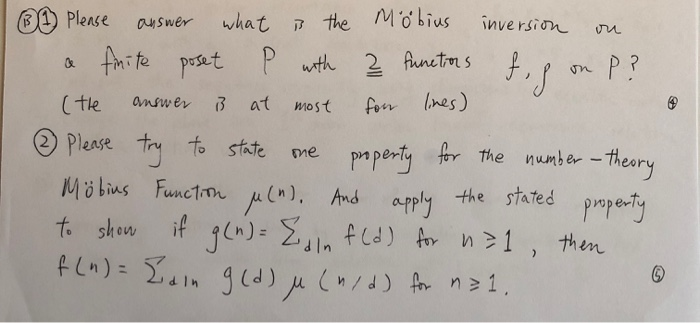 B ① Please answer what is the Möbius inversion on
a finite poset P with 2 functions f, g on P?
(the answer is at most four lines) ④
② Please try to state one property for the number-theory
Möbius Function μ(n). And apply the stated property
to show if g(n) = Σ_{d|n} f(d) for n ≥ 1, then
f(n) = Σ_{d|n} g(d) μ(n/d) for n ≥ 1. ⑤